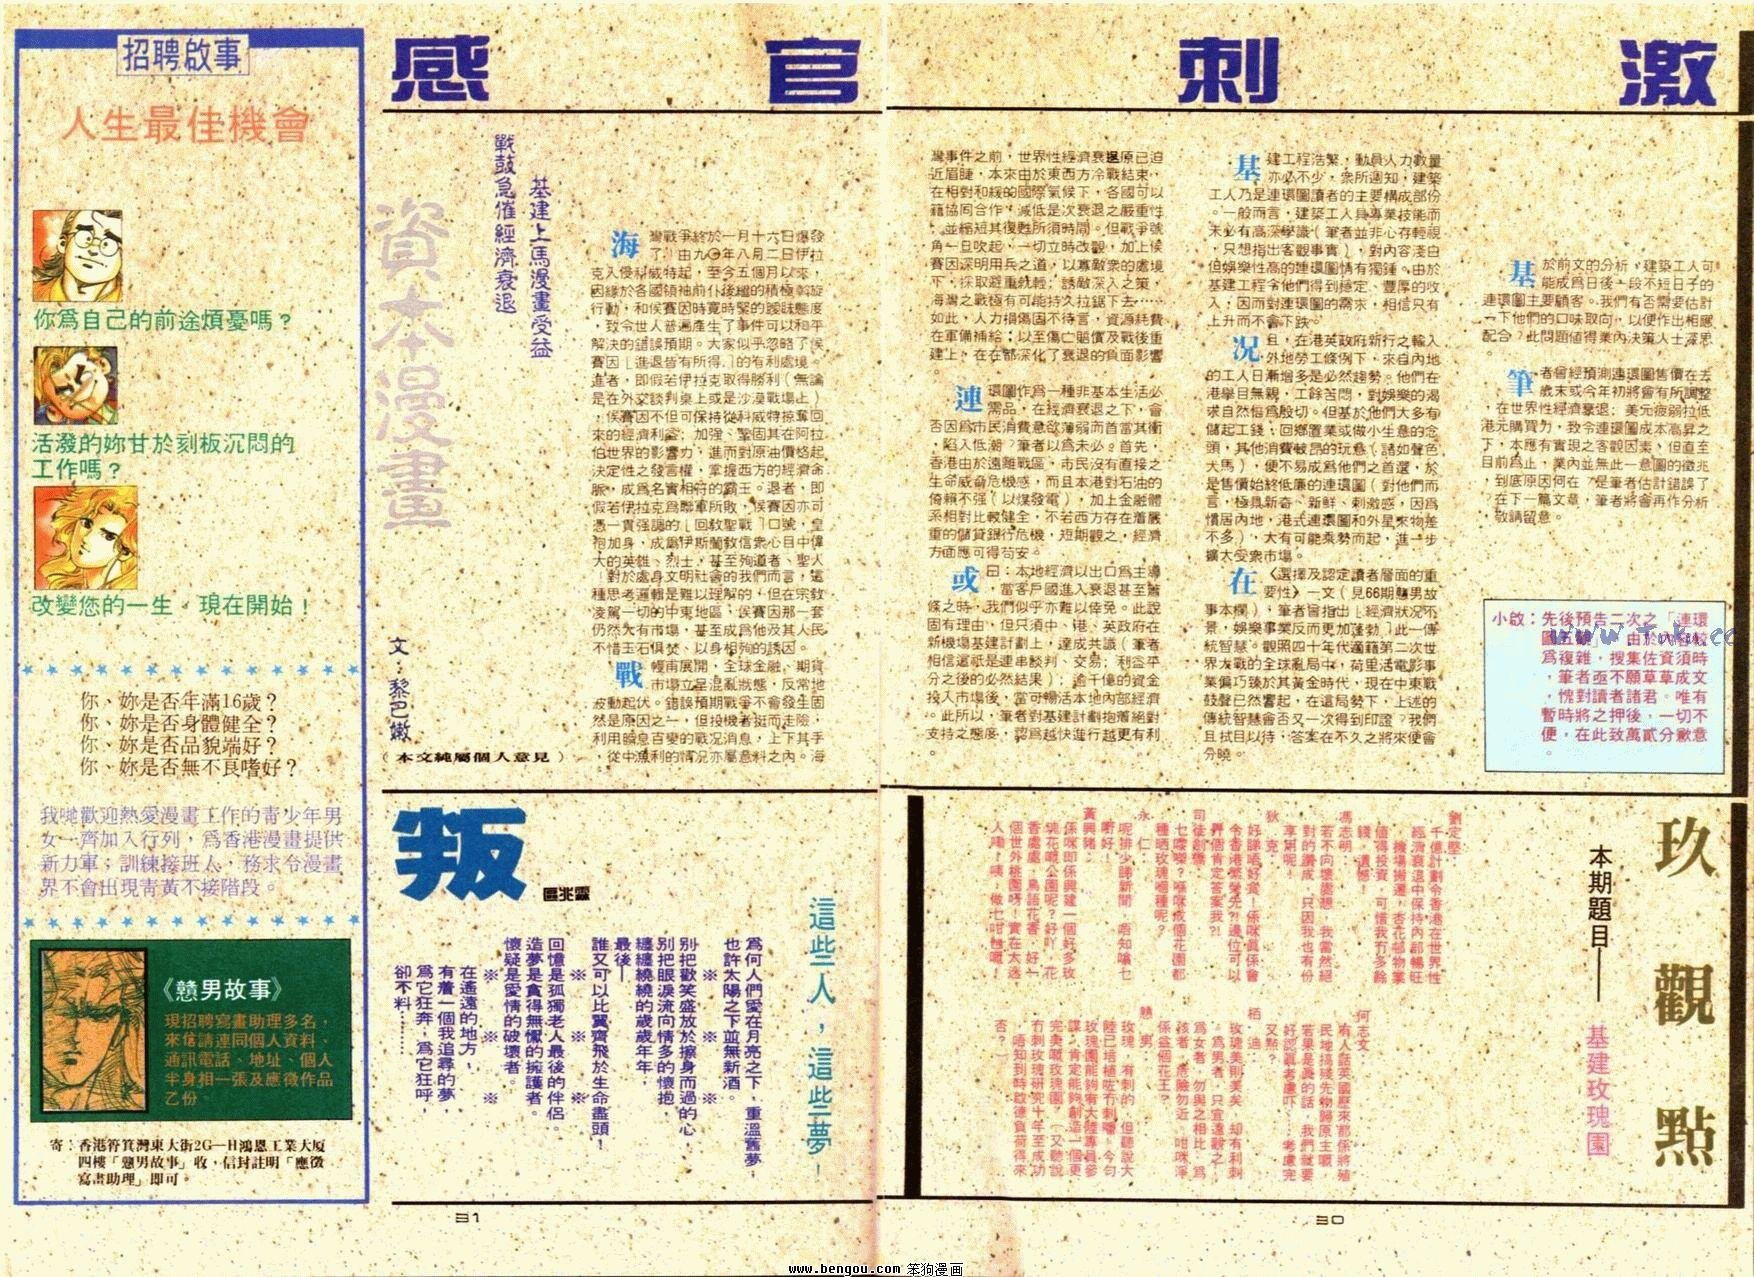 感官刺激
招聘啟事
人生最佳機會
你為自己的前途煩憂嗎？
活潑的妳甘於刻板沉悶的
工作嗎？
改變您的一生，現在開始！
你、妳是否年滿16歲？
你、妳是否身體健全？
你、妳是否品貌端好？
你、妳是否無不良嗜好？
我哋歡迎熱愛漫畫工作的青少年男
女一齊加入行列，為香港漫畫提供
新力軍；訓練接班人，務求令漫畫
界不會出現青黃不接階段。
《戇男故事》
現招聘寫畫助理多名，
來信請連同個人資料、
通訊電話、地址、個人
半身相一張及應徵作品
乙份。
寄：香港筲箕灣東大街2G—H鴻恩工業大厦
四樓「戇男故事」收，信封註明「應徵
寫畫助理」即可。
基建上馬漫畫受益
戰鼓急催經濟衰退
資本漫畫
文：黎巴嫩
（本文純屬個人意見）
海灣戰爭終於一月十六日爆發
了。由九〇年八月二日伊拉
克入侵科威特起，至今五個月以來，
因緣於各國領袖前仆後繼的積極斡旋
行動，和侯賽因時寬時緊的曖昧態度
，致令世人普遍產生了事件可以和平
解決的錯誤預期。大家似乎忽略了侯
賽因「進退皆有所得」的有利處境。
進者，即假若伊拉克取得勝利（無論
是在外交談判桌上或是沙漠戰場上）
，侯賽因不但可保持從科威特掠奪回
來的經濟利益；加強、鞏固其在阿拉
伯世界的影響力，進而對原油價格起
決定性之發言權，掌握西方的經濟命
脈，成為名實相符的霸王。退者，即
假若伊拉克為聯軍所敗，侯賽因亦可
憑一貫强調的「回教聖戰」口號，皇
袍加身，成為伊斯蘭教信衆心目中偉
大的英雄、烈士，甚至殉道者、聖人
！對於處身文明社會的我們而言，這
種思考邏輯是難以理解的，但在宗教
凌駕一切的中東地區，侯賽因那一套
仍然大有市場，甚至成為他及其人民
不惜玉石俱焚、以身相殉的誘因。
戰幔甫展開，全球金融、期貨
市場立呈混亂狀態，反常地
波動起伏。錯誤預期戰爭不會發生固
然是原因之一，但投機者挺而走險，
利用瞬息百變的戰况消息，上下其手
，從中漁利的情况亦屬意料之內。海
灣事件之前，世界性經濟衰退原已迫
近眉睫，本來由於東西方冷戰結束，
在相對和緩的國際氣候下，各國可以
藉協同合作，減低是次衰退之嚴重性
，並縮短其復甦所須時間。但戰爭號
角一旦吹起，一切立時改觀，加上侯
賽因深明用兵之道，以寡敵衆的處境
下，採取避重就輕；誘敵深入之策，
海灣之戰極有可能持久拉鋸下去……
如此，人力損傷固不待言，資源耗費
在軍備補給；以至傷亡賠償及戰後重
建上，在在都深化了衰退的負面影響
。
連環圖作為一種非基本生活必
需品，在經濟衰退之下，會
否因為市民消費意欲薄弱而首當其衝
，陷入低潮？筆者以為未必。首先，
香港由於遠離戰區，市民沒有直接之
生命威脅危機感，而且本港對石油的
倚賴不强（以煤發電），加上金融體
系相對比較健全，不若西方存在着嚴
重的儲貸銀行危機，短期觀之，經濟
方面應可得苟安。
或曰：本地經濟以出口為主導
，當客戶國進入衰退甚至蕭
條之時，我們似乎亦難以倖免。此說
固有理由，但只須中、港、英政府在
新機場基建計劃上，達成共識（筆者
相信這祇是連串談判、交易；利益平
分之後的必然結果）；逾千億的資金
投入市場後，當可暢活本地內部經濟
。此所以，筆者對基建計劃抱着絕對
支持之態度，認為越快進行越更有利
。
基建工程浩繁，動員人力數量
亦必不少，衆所週知，建築
工人乃是連環圖讀者的主要構成部份
。一般而言，建築工人員專業技能而
未必有高深學識（筆者並非心存輕視
，只想指出客觀事實），對內容淺白
但娛樂性高的連環圖情有獨鍾。由於
基建工程令他們得到穩定、豐厚的收
入，因而對連環圖的需求，相信只有
上升而不會下跌。
况且，在港英政府新行之輸入
外地勞工條例下，來自內地
的工人日漸增多是必然趨勢。他們在
港舉目無親，工餘苦悶，對娛樂的渴
求自然倍為殷切。但基於他們大多有
儲起工錢，回鄉置業或做小生意的念
頭，其他消費較昂的玩意（諸如聲色
犬馬），便不易成為他們之首選，於
是售價始終低廉的連環圖（對他們而
言，極具新奇、新鮮、刺激感，因為
慣居內地，港式連環圖和外星來物差
不多），大有可能乘勢而起，進一步
擴大受衆市場。
在〈選擇及認定讀者層面的重
要性〉一文（見66期戇男故
事本欄），筆者曾指出「經濟狀况不
景，娛樂事業反而更加蓬勃」此一傳
統智慧。觀照四十年代適籍第二次世
界大戰的全球亂局中，荷里活電影事
業偏巧臻於其黃金時代，現在中東戰
鼓聲已然響起，在這局勢下，上述的
傳統智慧會否又一次得到印證？我們
且拭目以待，答案在不久之將來便會
分曉。
基於前文的分析，建築工人可
能成為日後一段不短日子的
連環圖主要顧客。我們有否需要估計
一下他們的口味取向，以便作出相應
配合？此問題值得業內決策人士深思
。
筆者曾經預測連環圖售價在去
歲末或今年初將會有所調整
，在世界性經濟衰退；美元疲弱拉低
港元購買力，致令連環圖成本高昇之
下，本應有實現之客觀因素，但直至
目前為止，業內並無此一意圖的徵兆
，到底原因何在？是筆者估計錯誤了
？在下一篇文章，筆者將會再作分析
，敬請留意。
小啟：先後預告二次之「連環
圖五觀」，由於內容較
為複雜，搜集佐資須時
，筆者亟不願草草成文
，愧對讀者諸君。唯有
暫時將之押後，一切不
便，在此致萬貳分歉意
。
叛
區兆霖
這些人，這些夢！
為何人們愛在月亮之下，重溫舊夢，
也許太陽之下並無新酒。
※　※　※
別把歡笑盛放於擦身而過的心，
別把眼淚流向情多的懷抱，
纏纏繞繞的歲歲年年，
最後—
誰又可以比翼齊飛於生命盡頭！
※　※　※
回憶是孤獨老人最後的伴侶。
造夢是貪得無懨的擁護者。
懷疑是愛情的破壞者。
※　※　※
在遙遠的地方，
有着一個我追尋的夢，
為它狂奔，為它狂呼，
卻不料……
玖觀點
本期題目——
基建玫瑰園
劉定堅：
千億計劃令香港在世界性
經濟衰退中保持內部暢旺
，機場搬遷，杏花邨物業
值得投資，可惜我冇多餘
錢，遺憾！
馮志明：
若不向壞處想，我當然絕
對的讚成，只因我也有份
享用呢！
狄克：
好睇唔好賞！係咪真係會
令香港繁榮先?!邊位可以
畀個肯定答案我?!
司徒劍僑：
乜嘢嚟？喺咪成個花園都
種晒玫瑰嗰種呢？
永仁：
呢排少睇新聞，唔知噏乜
嘢好！
黃興豬：
係咪即係興建一個好多玫
瑰花嘅公園呢？好吖，花
香處處，鳥語花香，好一
個世外桃園呀！實在太迷
人嘞！咦，做乜咁臭嘅！
何志文：
有人話英國歷來都係將殖
民地搞殘先物歸原主嘅，
若果是真的話，我們就要
好認真考慮吓……考慮完
又點？
栢迪：
玫瑰美則美矣，却有利刺
。為男者，只宜遠觀之，
為女者，勿與之相比，為
孩者，危險勿近，咁咪淨
係益個花王？
戇男：
玫瑰，有刺的，但聽說大
陸已培植成冇刺嘞！今勻
玫瑰園能夠有大陸專員參
謀，肯定能夠創造一個更
完美嘅玫瑰園，（又聽說
冇刺玫瑰研究十年至成功
，唔知到時啟德負荷得來
否？）
31
30
www.bengou.com 笨狗漫画